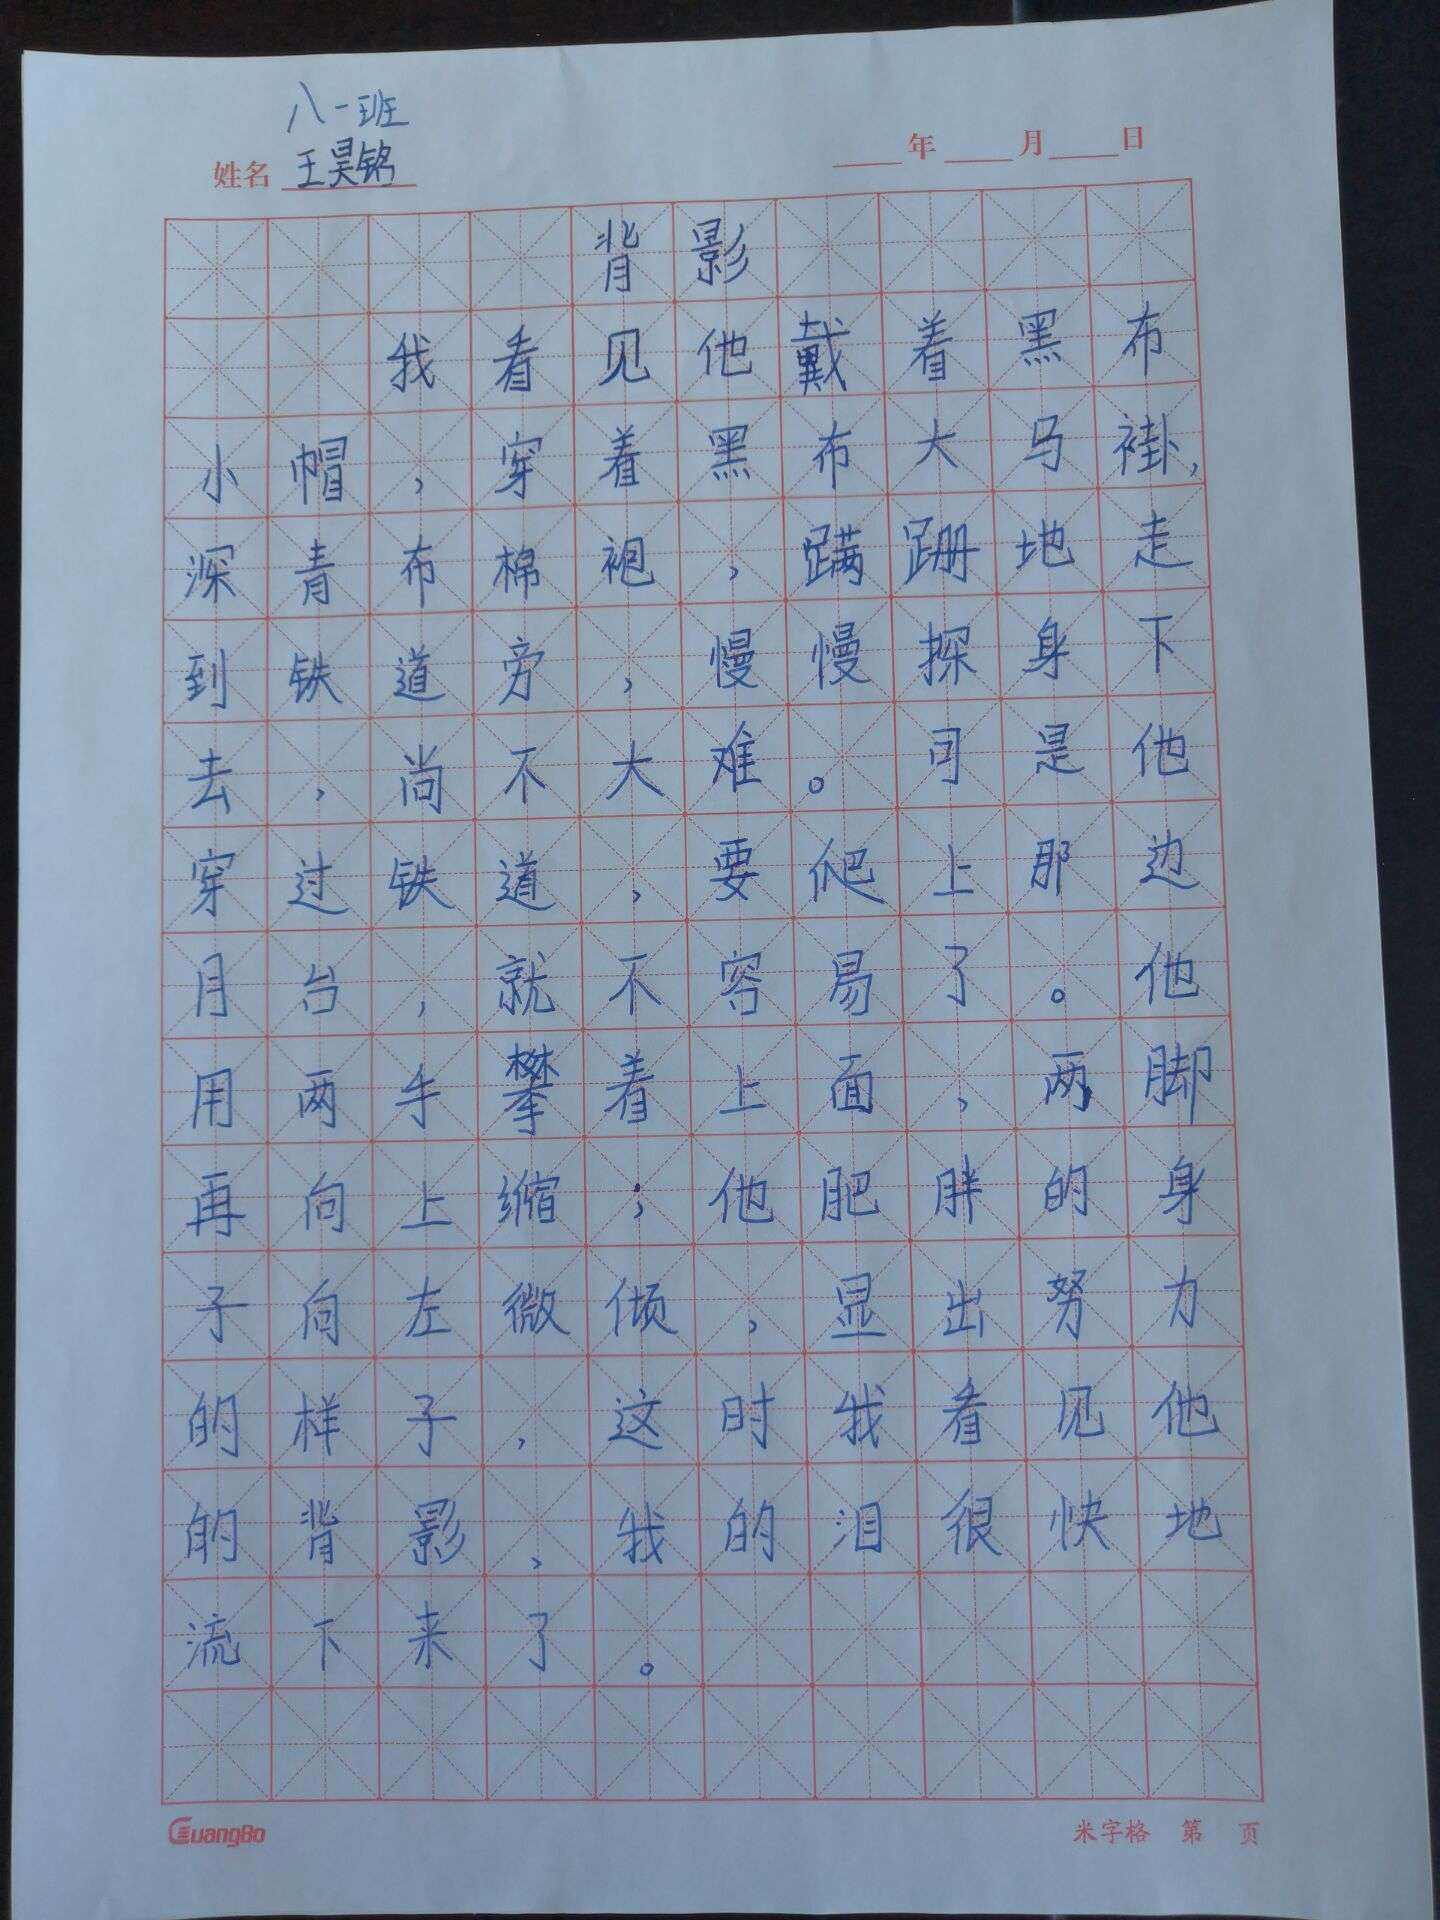 八一班
姓名 王昊铭 年 月 日
背影
我看见他戴着黑布
小帽，穿着黑布大马褂，
深青布棉袍，蹒跚地走
到铁道旁，慢慢探身下
去，尚不大难。可是他
穿过铁道，要爬上那边
月台，就不容易了。他
用两手攀着上面，两脚
再向上缩；他肥胖的身
子向左微倾，显出努力
的样子，这时我看见他
的背影，我的泪很快地
流下来了。
GuangBo 米字格 第 页